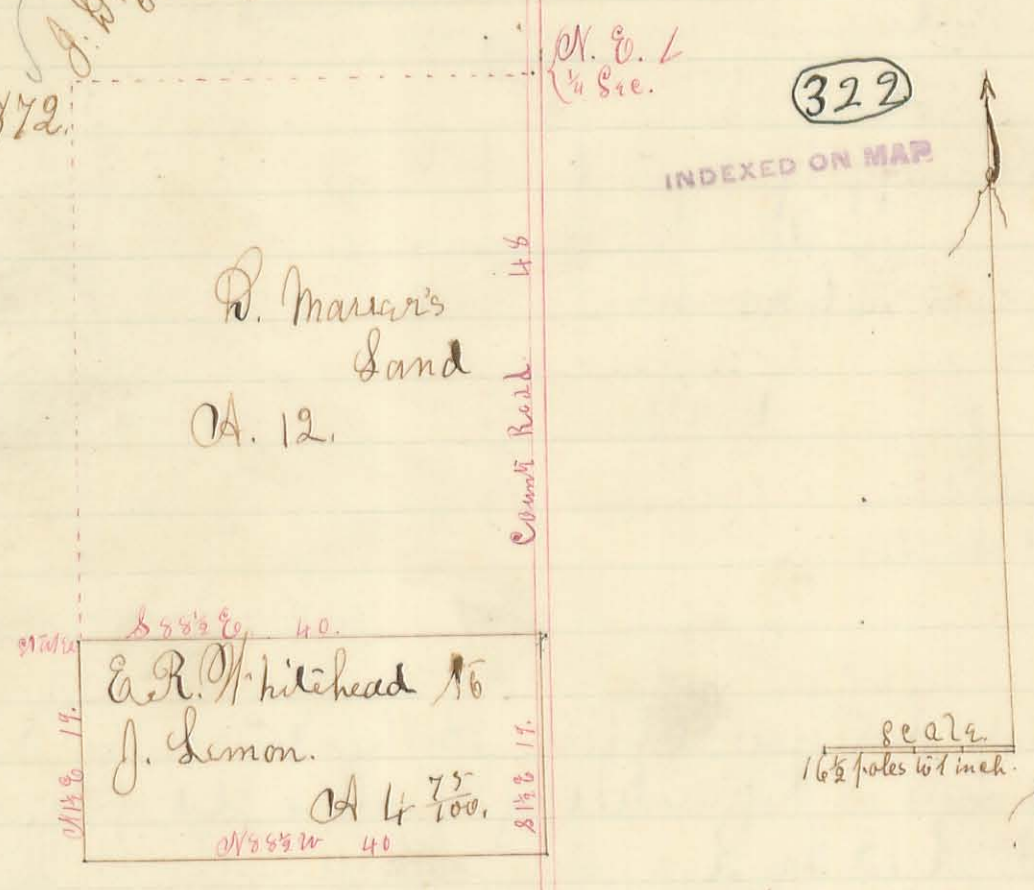 J. D
N. E. L
¼ Sec.
322
INDEXED ON MAP
172.
D. Marrar's
Land
A. 12.
County Road 48
S 88½ E 40.
Stake
E. R. Whitehead to
J. Lemon.
A 4 75/100.
N 1½ E 19.
S 1½ E 19.
N 88½ W 40
Scale.
16½ poles to 1 inch.